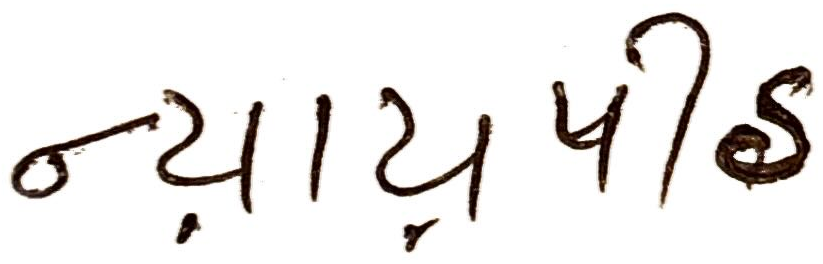 ન્ય઼ાય઼પીઠ